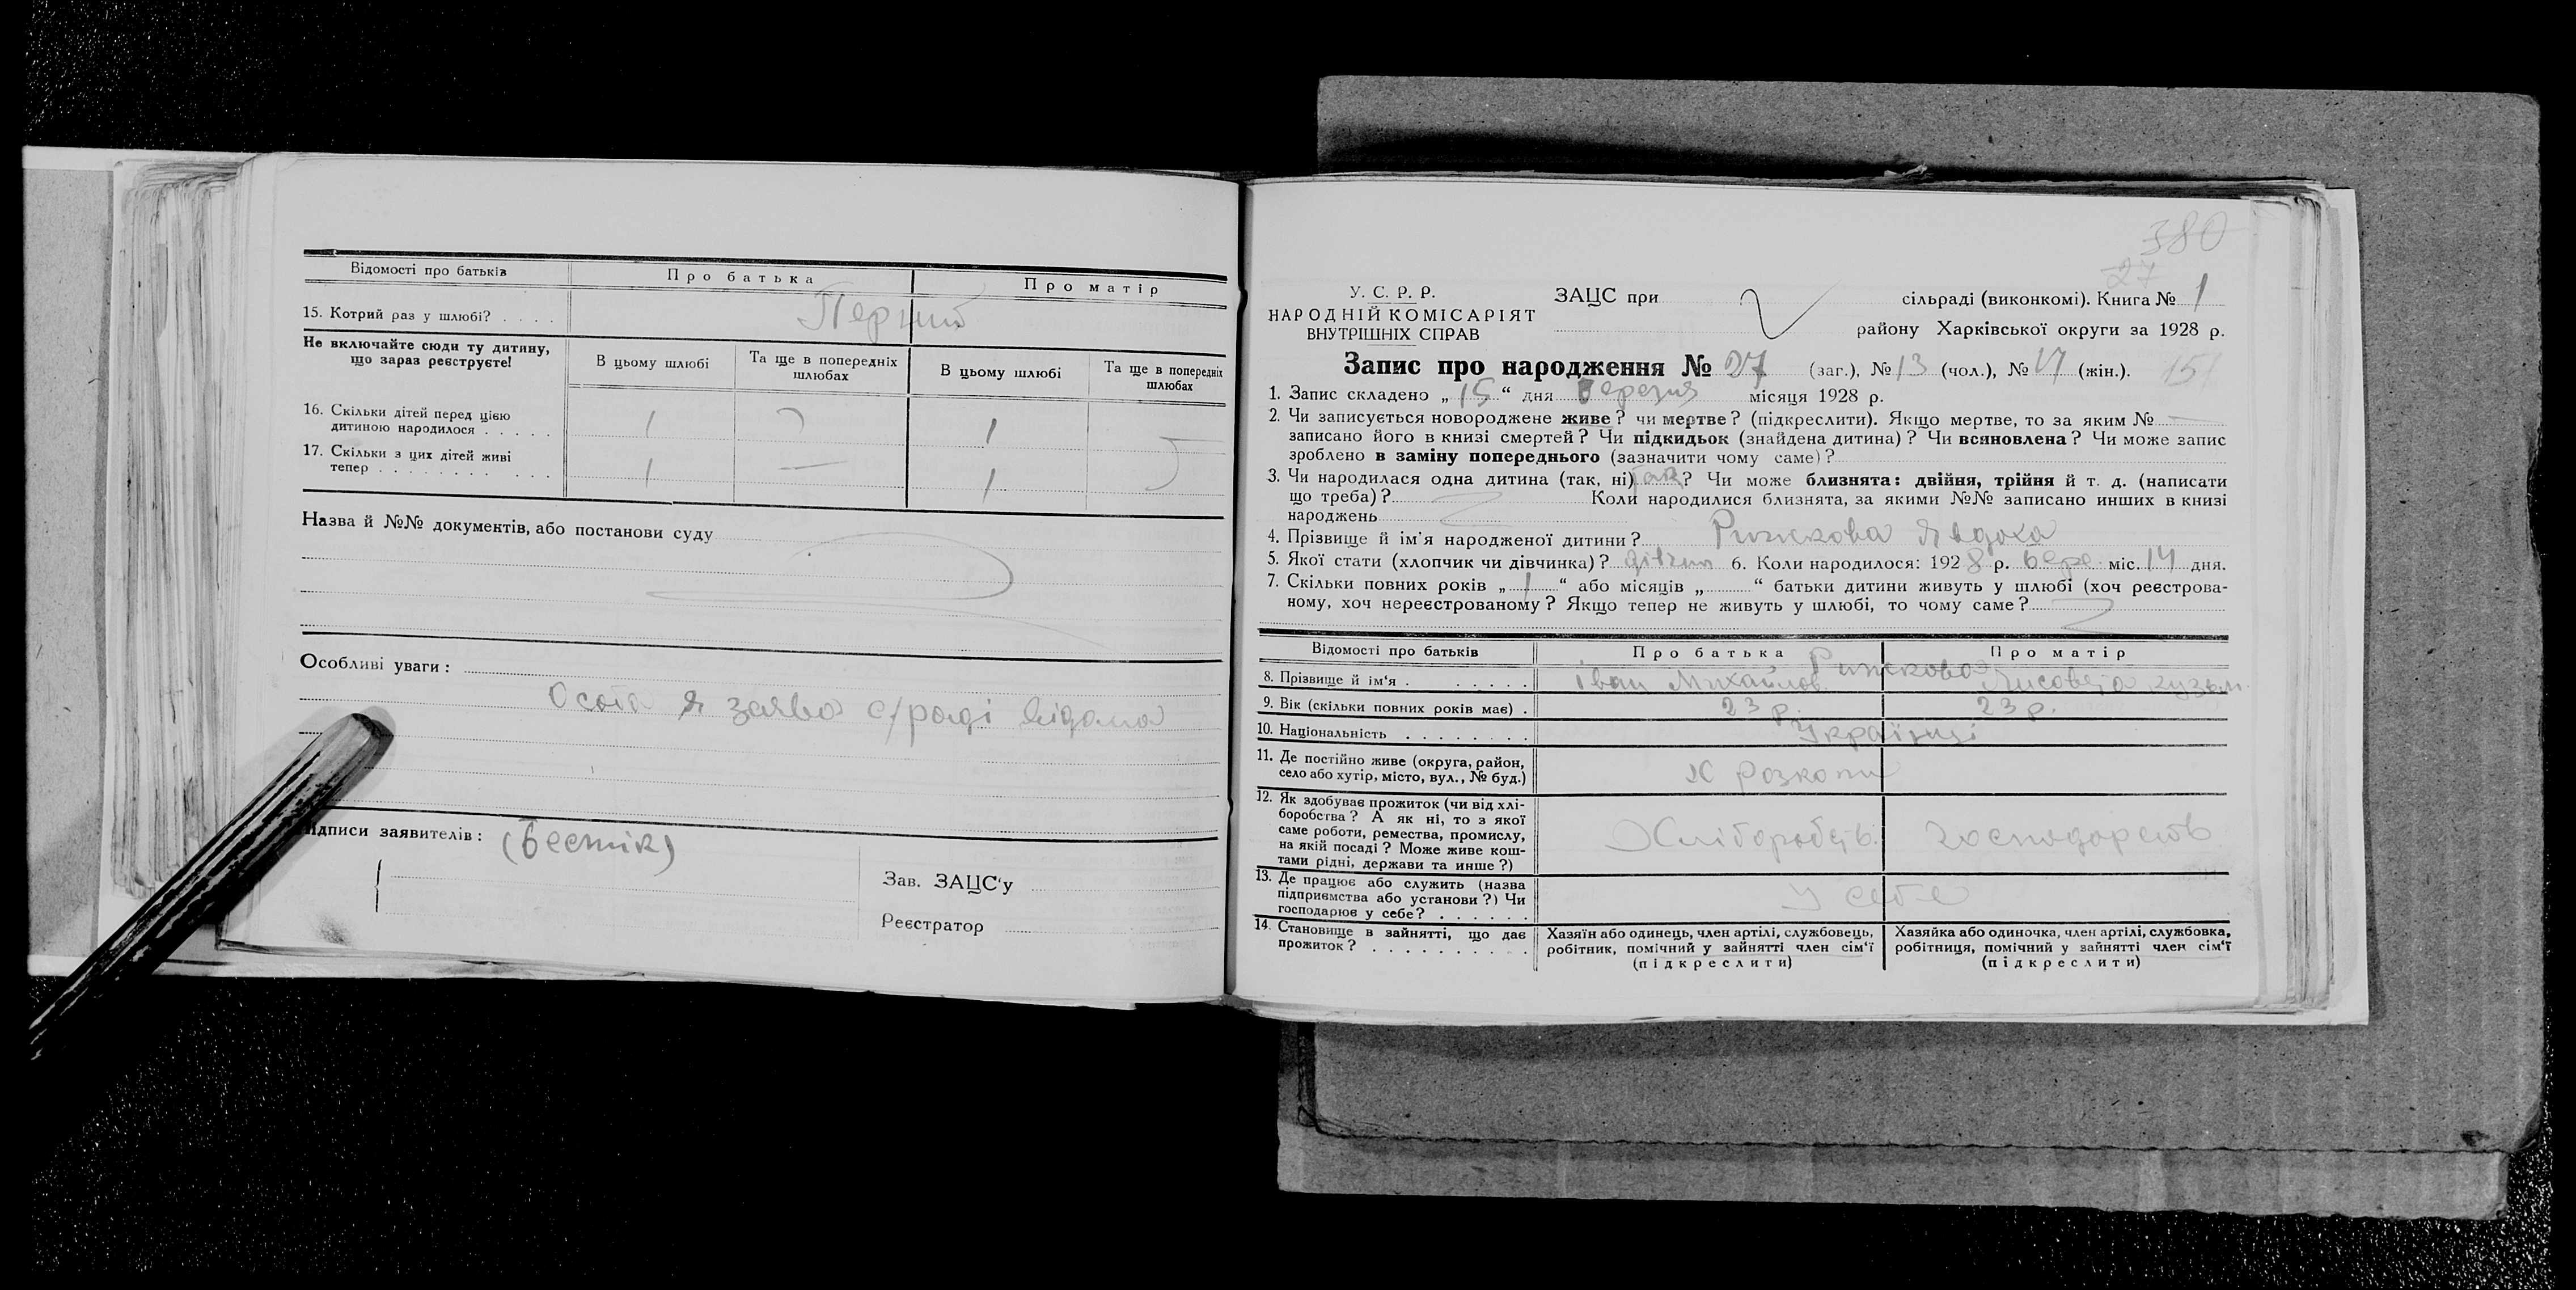 Відомості про батьків
Про батька
Про матір
15. Котрий раз у шлюбі? . . . .
Перший
Не включайте сюди ту дитину,
що зараз реєструєте!
В цьому шлюбі
Та ще в попередніх
шлюбах
В цьому шлюбі
Та ще в попередніх
шлюбах
16. Скільки дітей перед цією
дитиною народилося . . . . .
1
1
17. Скільки з цих дітей живі
тепер . . . . . . . . . . .
1
—
1
Назва й №№ документів, або постанови суду
Особливі уваги:
Особа я заява с/раді відома
ідписи заявителів:
Зав. ЗАЦС'у
Реєстратор
380
27
У. С. Р. Р.
НАРОДНІЙ КОМІСАРІЯТ
ВНУТРІШНІХ СПРАВ
ЗАЦС при
сільраді (виконкомі). Книга № 1
району Харківської округи за 1928 р.
Запис про народження № 27 (заг.), № 13 (чол.), № (жін.). 151
1. Запис складено „ 15 “ дня Березня місяця 1928 р.
2. Чи записується новороджене живе? чи мертве? (підкреслити). Якщо мертве, то за яким № —
записано його в книзі смертей? Чи підкидьок (знайдена дитина)? Чи всиновлена? Чи може запис
зроблено в заміну попереднього (зазначити чому саме)?
3. Чи народилася одна дитина (так, ні) так? Чи може близнята: двійня, трійня й т. д. (написати
що треба)? Коли народилися близнята, за якими №№ записано инших в книзі
народжень
4. Прізвище й ім'я народженої дитини? Рижкова Явдоха
5. Якої стати (хлопчик чи дівчинка)? дівчин 6. Коли народилося: 1928 р. бере міс. 14 дня.
7. Скільки повних років „ 1 “ або місяців „ “ батьки дитини живуть у шлюбі (хоч реєстрова-
ному, хоч нереєстрованому? Якщо тепер не живуть у шлюбі, то чому саме?
Відомості про батьків
Про батька
Про матір
Рижкова
8. Прізвище й ім'я . . . . . .
Іван Михайлов.
Лисовета кузьм.
9. Вік (скільки повних років має) .
23 р.
23 р.
10. Національність . . . . . . . .
Українці
11. Де постійно живе (округа, район,
село або хутір, місто, вул., № буд.)
Х Розкопи
12. Як здобуває прожиток (чи від хлі-
боробства? А як ні, то з якої
саме роботи, ремества, промислу,
на якій посаді? Може живе кош-
тами рідні, держави та инше?)
Хліборобств.
господарств
13. Де працює або служить (назва
підприємства або установи?) Чи
господарює у себе? . . . . . .
У себе
14. Становище в зайнятті, що дає
прожиток? . . . . . . . . . .
Хазяїн або одинець, член артілі, службовець,
робітник, помічний у зайнятті член сім'ї
(підкреслити)
Хазяйка або одиночка, член артілі, службовка,
робітниця, помічний у зайнятті член сім'ї
(підкреслити)